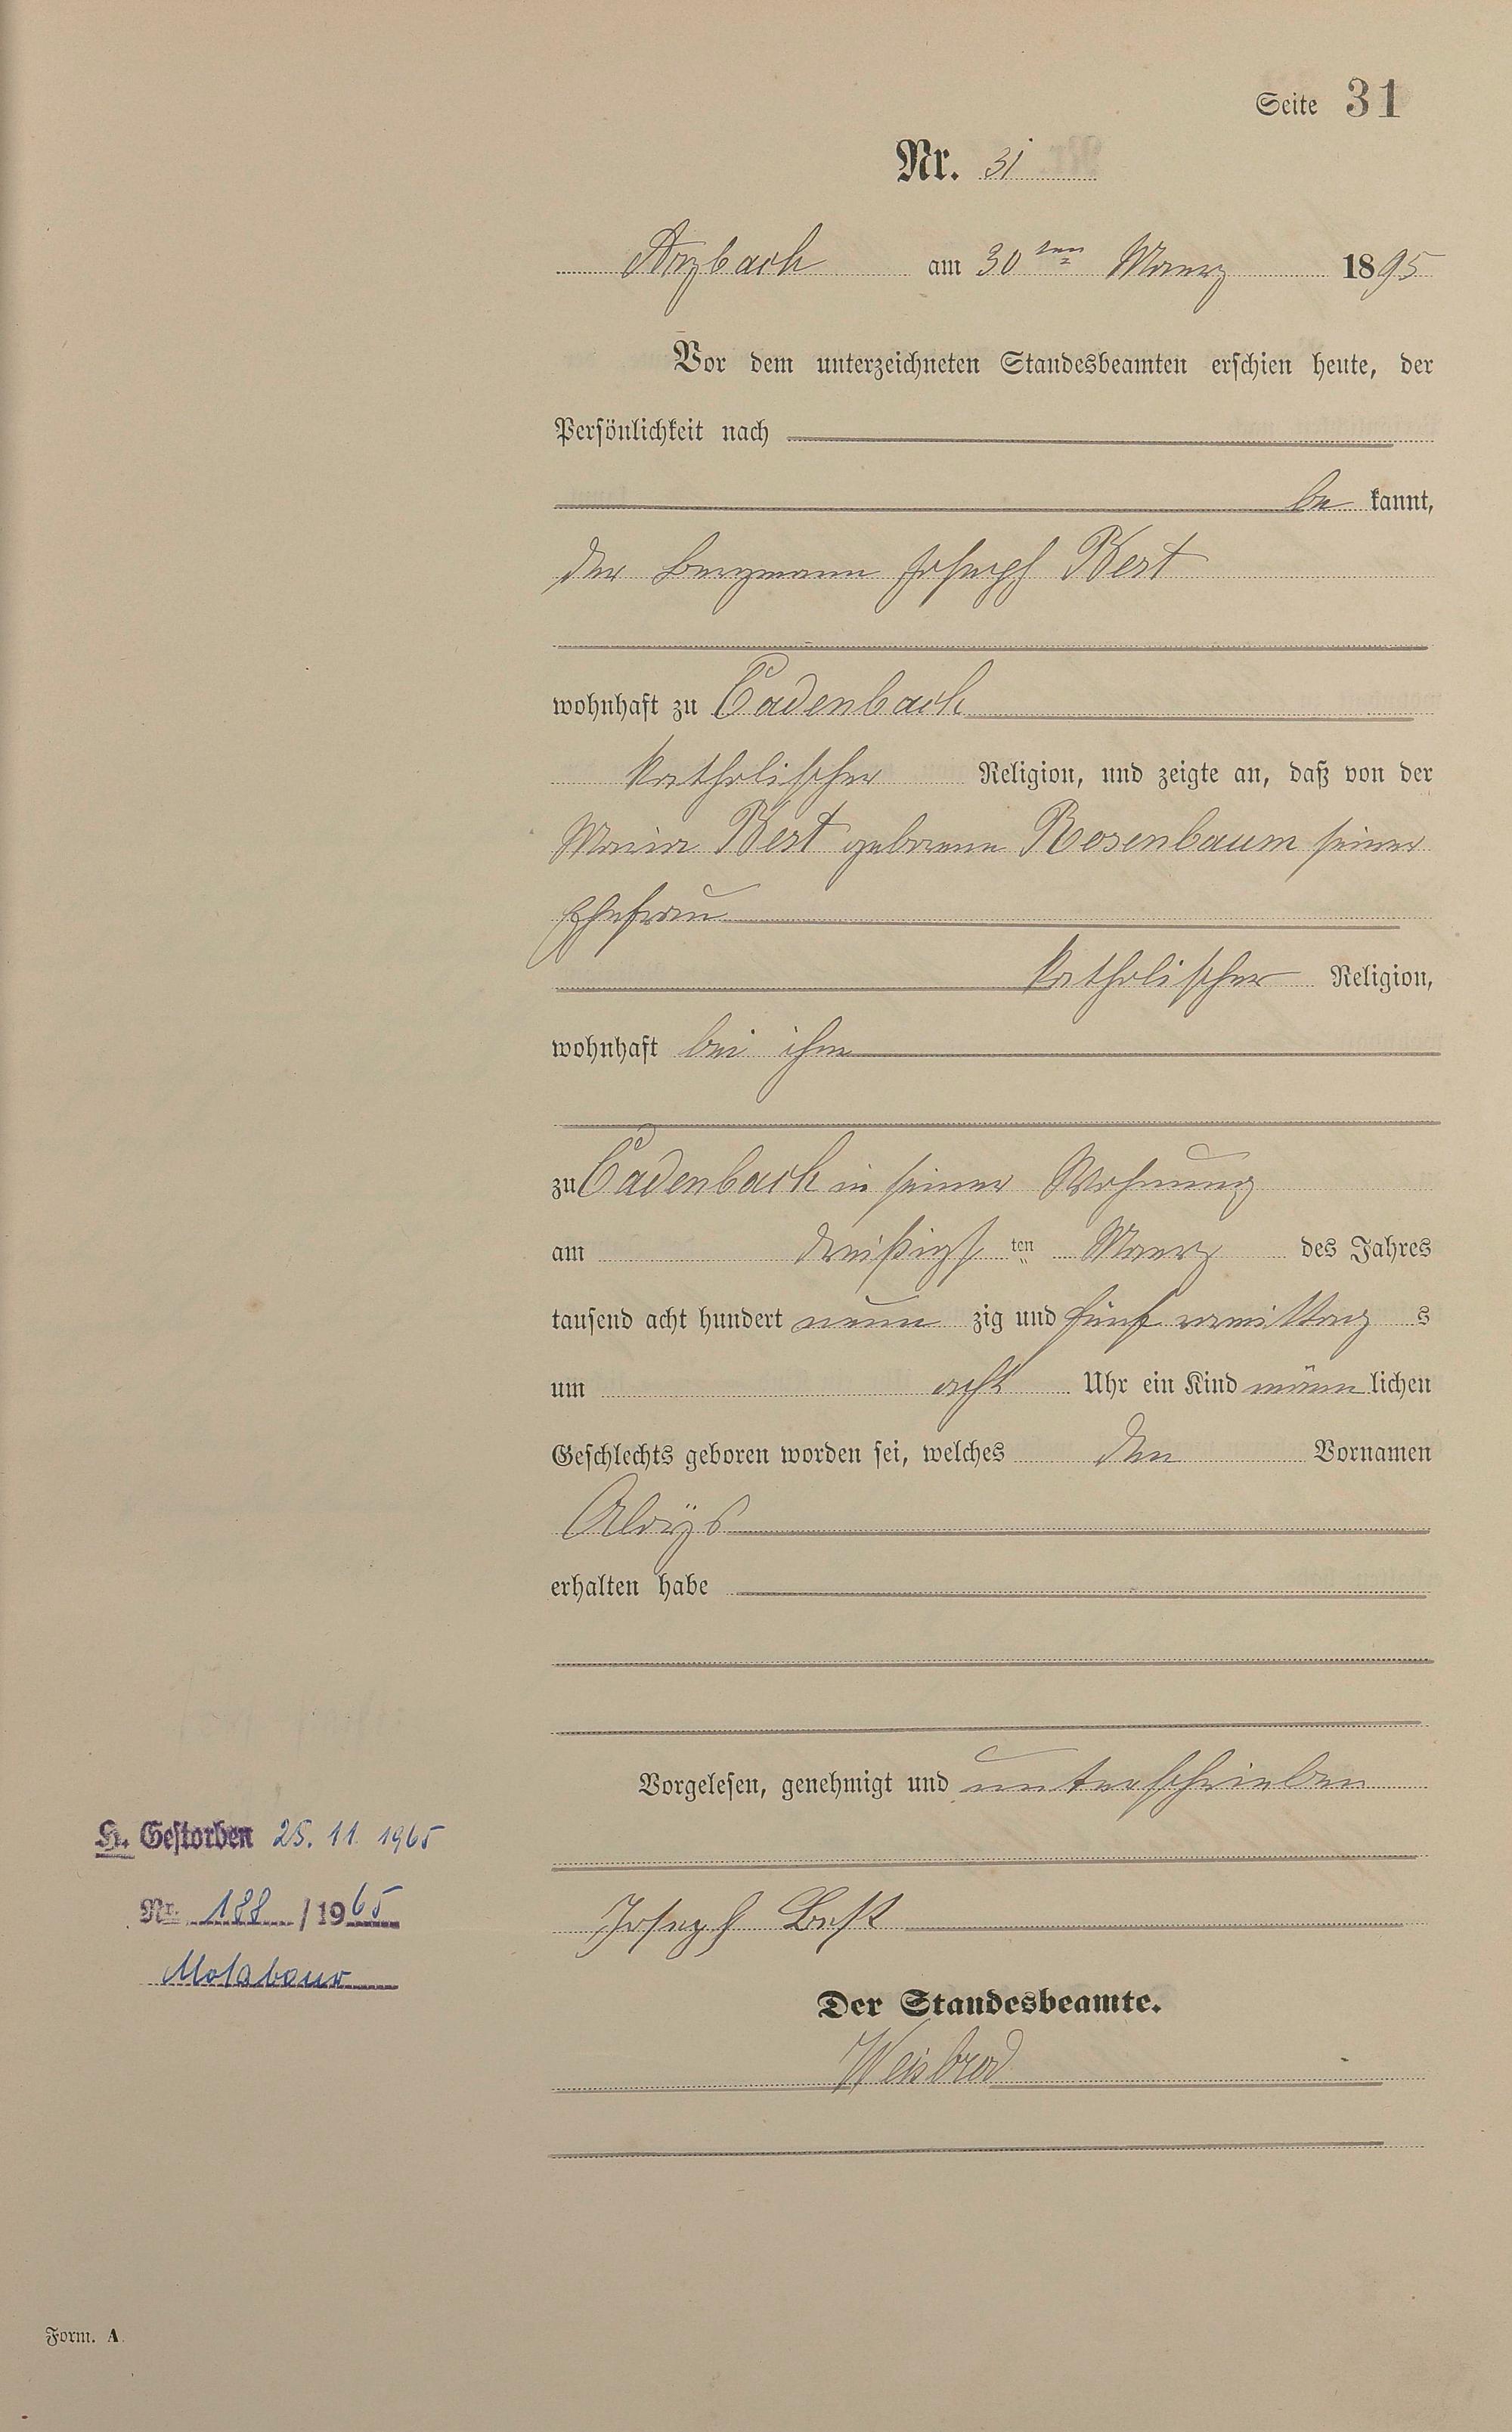 Seite 31
Nr. 31
Arzbach am 30ten Maerz 1895
Vor dem unterzeichneten Standesbeamten erschien heute, der
Persönlichkeit nach
be kannt,
der Bergmann Joseph Best
wohnhaft zu Cadenbach
katholischer Religion, und zeigte an, daß von der
Maria Best geborene Rosenbaum seiner
Ehefrau
katholischer Religion,
wohnhaft bei ihm
zu Cadenbach in seiner Wohnung
am dreißigs ten Maerz des Jahres
tausend acht hundert neun zig und fünf vormittag s
um acht Uhr ein Kind männ lichen
Geschlechts geboren worden sei, welches den Vornamen
Aloys
erhalten habe
Vorgelesen, genehmigt und unterschrieben
H. Gestorben 25. 11. 1965
Nr. 188 / 1965
Joseph Best
Der Standesbeamte.
Weisbrod
Form. A.